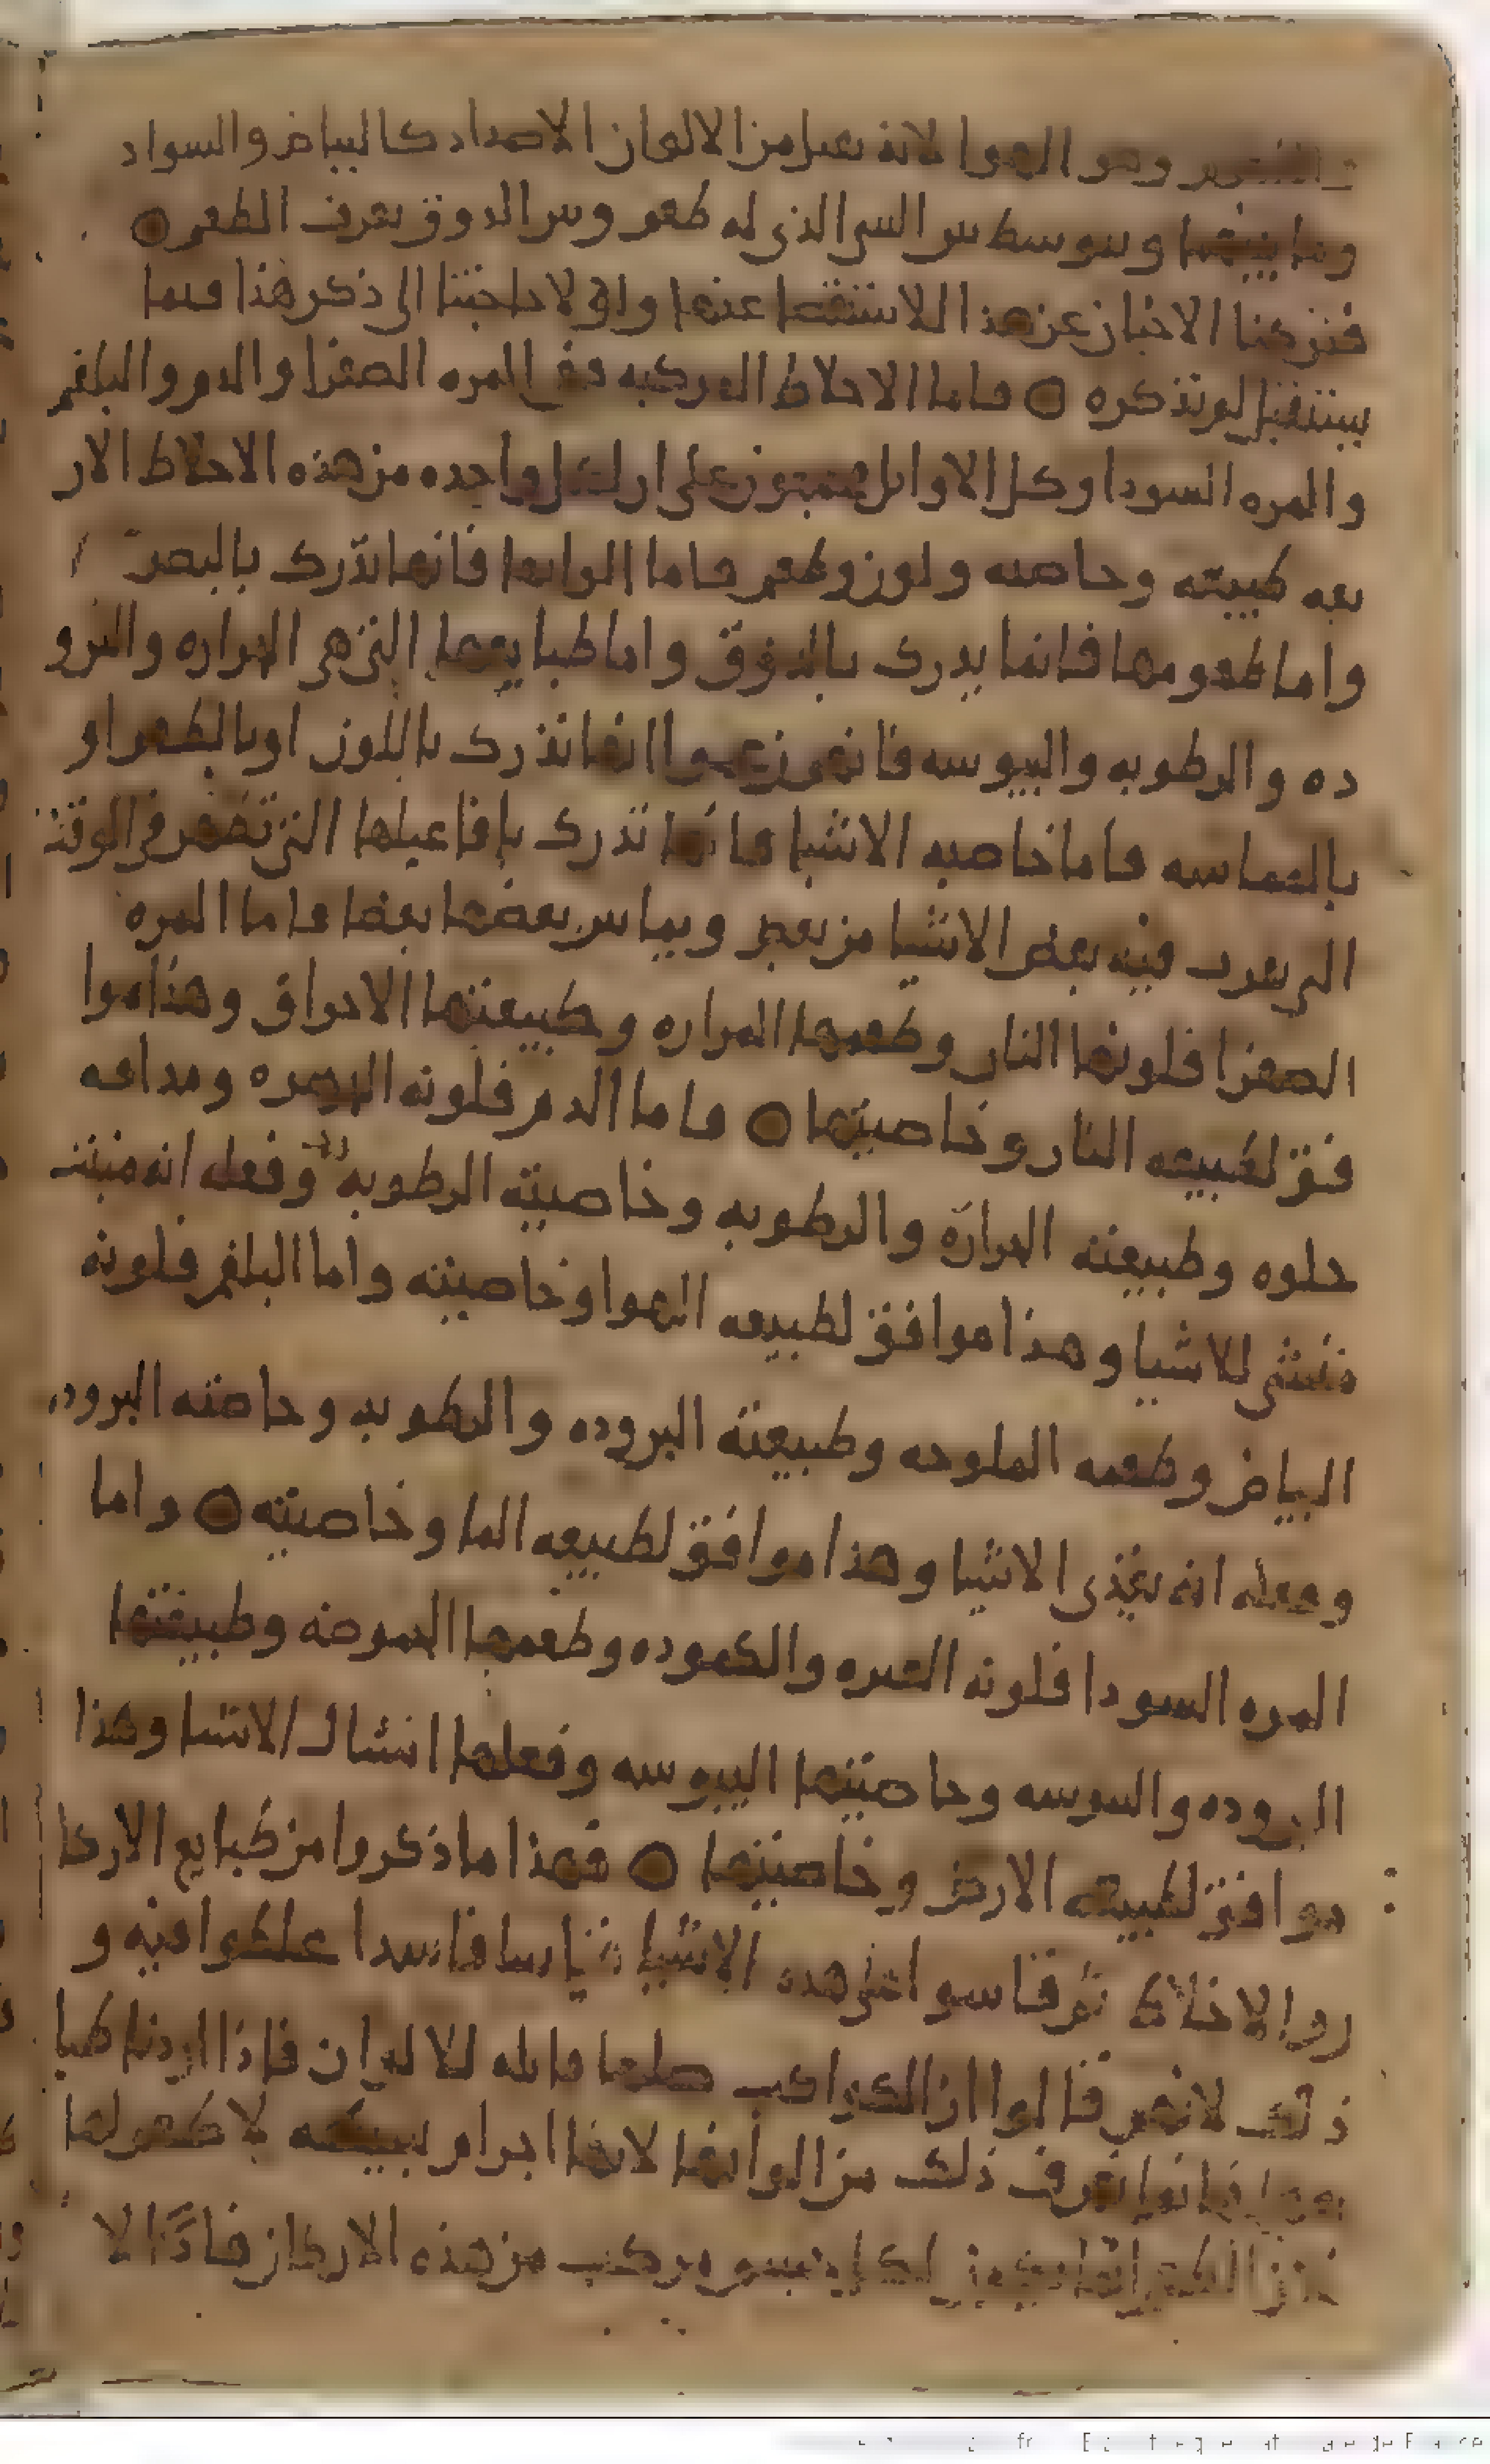 وهو الهوا لانه يقبل من الالوان الاضداد كالبياض والسواد
وما بينهما ويتوسط بين الشي الذي له طعم وبين الذوق يعرف الطعم ○
فتركنا الاخبار عن هذا للاستقصا عنها ولولا حاجتنا الى ذكر هذا فيما
يستقبل لم نذكره ○ فاما الاخلاط المركبه فهي المره الصفرا والدم والبلغم
والمره السودا وكل الاوايل على ان لكل واحده من هذه الاخلاط الار
بعه طبيعه وخاصه ولون وطعم فاما الوانها فانها تدرك بالبصر
واما طعومها فانما يدرك بالذوق واما طبايعها التي هي الحراره والبرو
ده والرطوبه واليبوسه فانهم زعموا انها تدرك باللون او بالطعم او
بالمماسه فاما خاصيه الاشيا فانها تدرك بافاعيلها التي تظهر في الوقت
الذي يقرب فيه بعض الاشيا من بعض ويماس بعضها بعضا فاما المره
الصفرا فلونها النار وطعمها المراره وطبيعتها الاحراق وهذا موا
فق لطبيعه النار وخاصيتها ○ فاما الدم فلونه الحمره ومذاقه
حلوه وطبيعته الحراره والرطوبه وخاصيته الرطوبه وفعله انه منبت
منشي للاشيا وهذا موافق لطبيعه الهوا وخاصيته واما البلغم فلونه
البياض وطعمه الملوحه وطبيعته البروده والرطوبه وخاصته البروده
وفعله انه يغذي الاشيا وهذا موافق لطبيعه الما وخاصيته ○ واما
المره السودا فلونه الغبره والكموده وطعمها الحموضه وطبيعتها
البروده واليبوسه وخاصيتها اليبوسه وفعلها الاشيا وهذا
موافق لطبيعه الارض وخاصيتها ○ فهذا ما ذكروا من طبايع الاركا
والاخلاط ثم قاسوا على هذه الاشيا قياسا فاسدا غلطوا فيه و
ذلك لانهم قالوا ان الكواكب قابله للالوان فاذا اردنا طبا
يعها فانما نعرف ذلك من الوانها لانها اجرام بسيطه لا طعم لها
الطعم انما يكون لكل جسم مركب من هذه الاركان فاذا الا